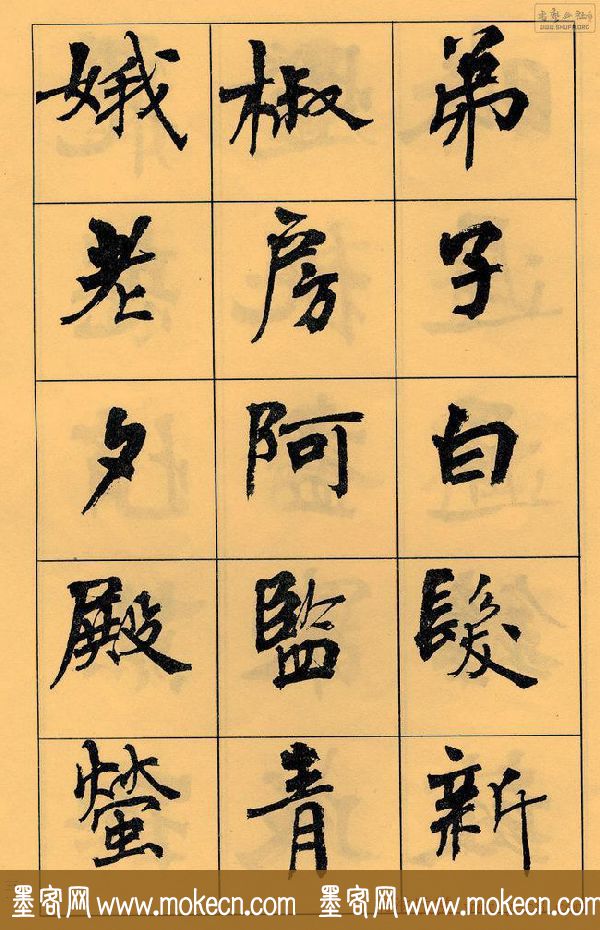 弟子白髮新
椒房阿監青
娥老夕殿螢
WWW.SHUFA.ORG
墨客网 www.mokecn.com 墨客网 www.mokecn.com